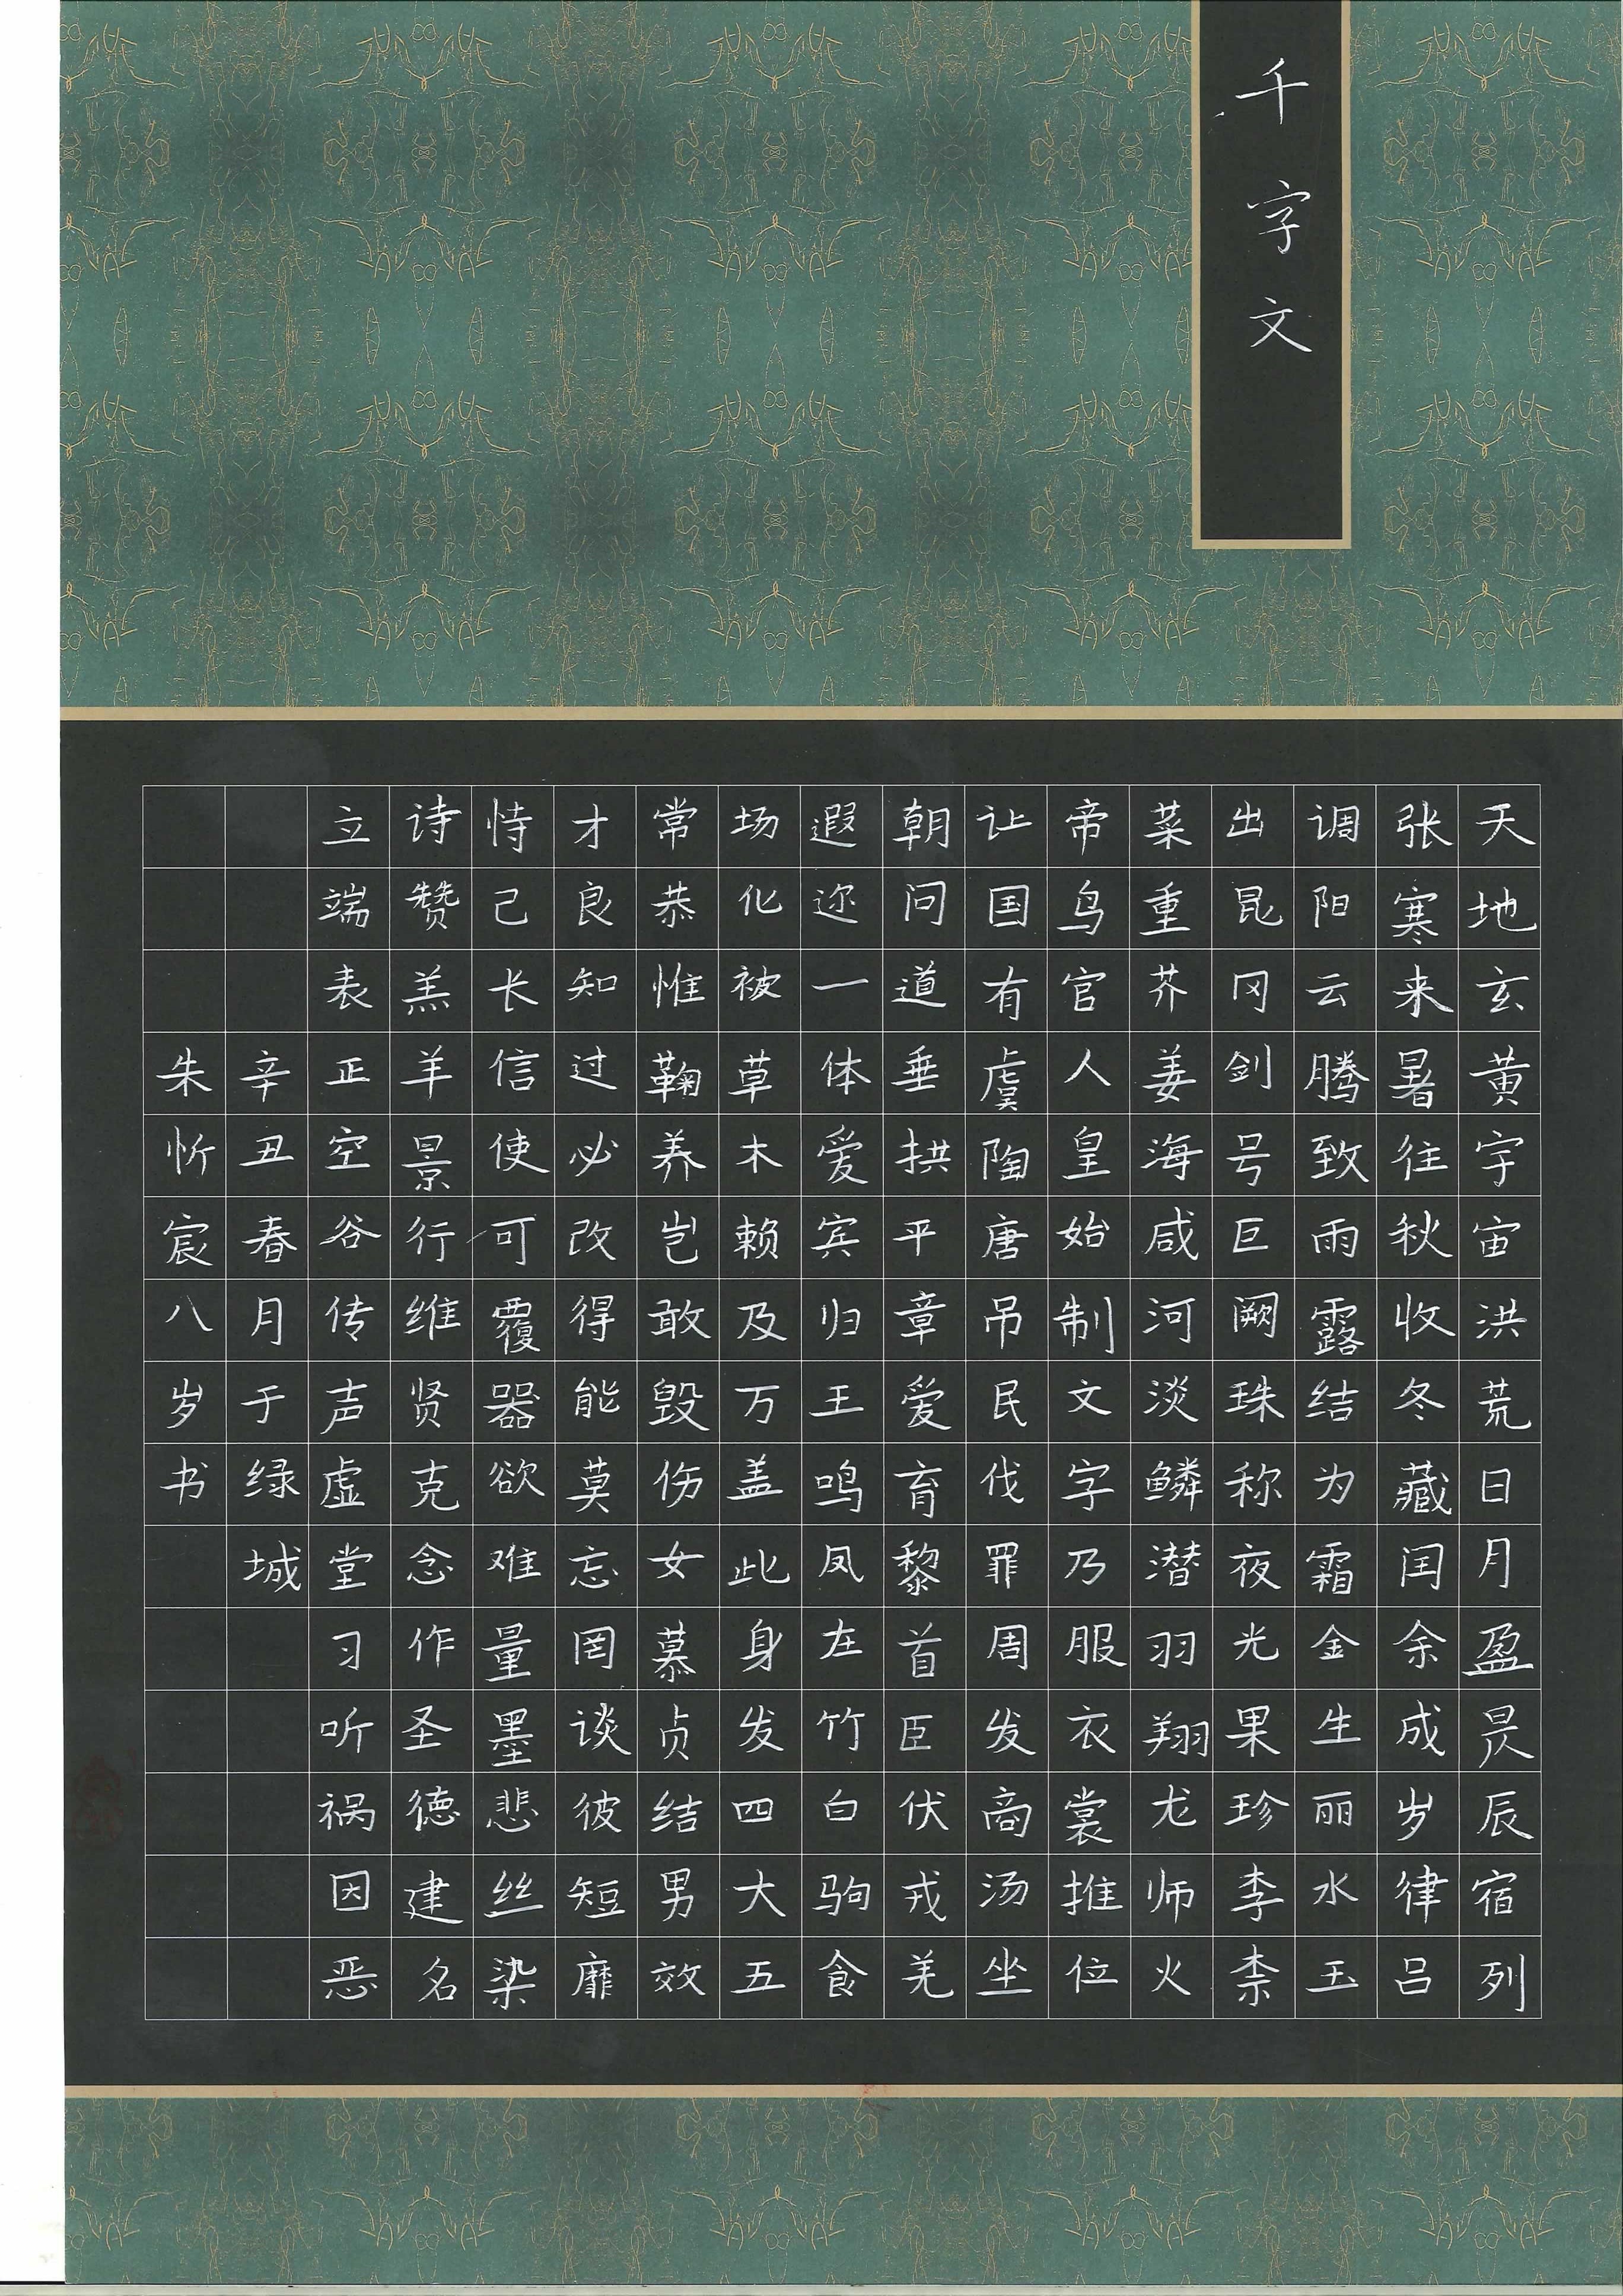 千字文
天地玄黄宇宙洪荒日月盈昃辰宿列
张寒来暑往秋收冬藏闰余成岁律吕
调阳云腾致雨露结为霜金生丽水玉
出昆冈剑号巨阙珠称夜光果珍李柰
菜重芥姜海咸河淡鳞潜羽翔龙师火
帝鸟官人皇始制文字乃服衣裳推位
让国有虞陶唐吊民伐罪周发商汤坐
朝问道垂拱平章爱育黎首臣伏戎羌
遐迩一体爱宾归王鸣凤在竹白驹食
场化被草木赖及万盖此身发四大五
常恭惟鞠养岂敢毁伤女慕贞结男效
才良知过必改得能莫忘罔谈彼短靡
恃己长信使可覆器欲难量墨悲丝染
诗赞羔羊景行维贤克念作圣德建名
立端表正空谷传声虚堂习听祸因恶
辛丑春月于绿城
朱忻宸八岁书